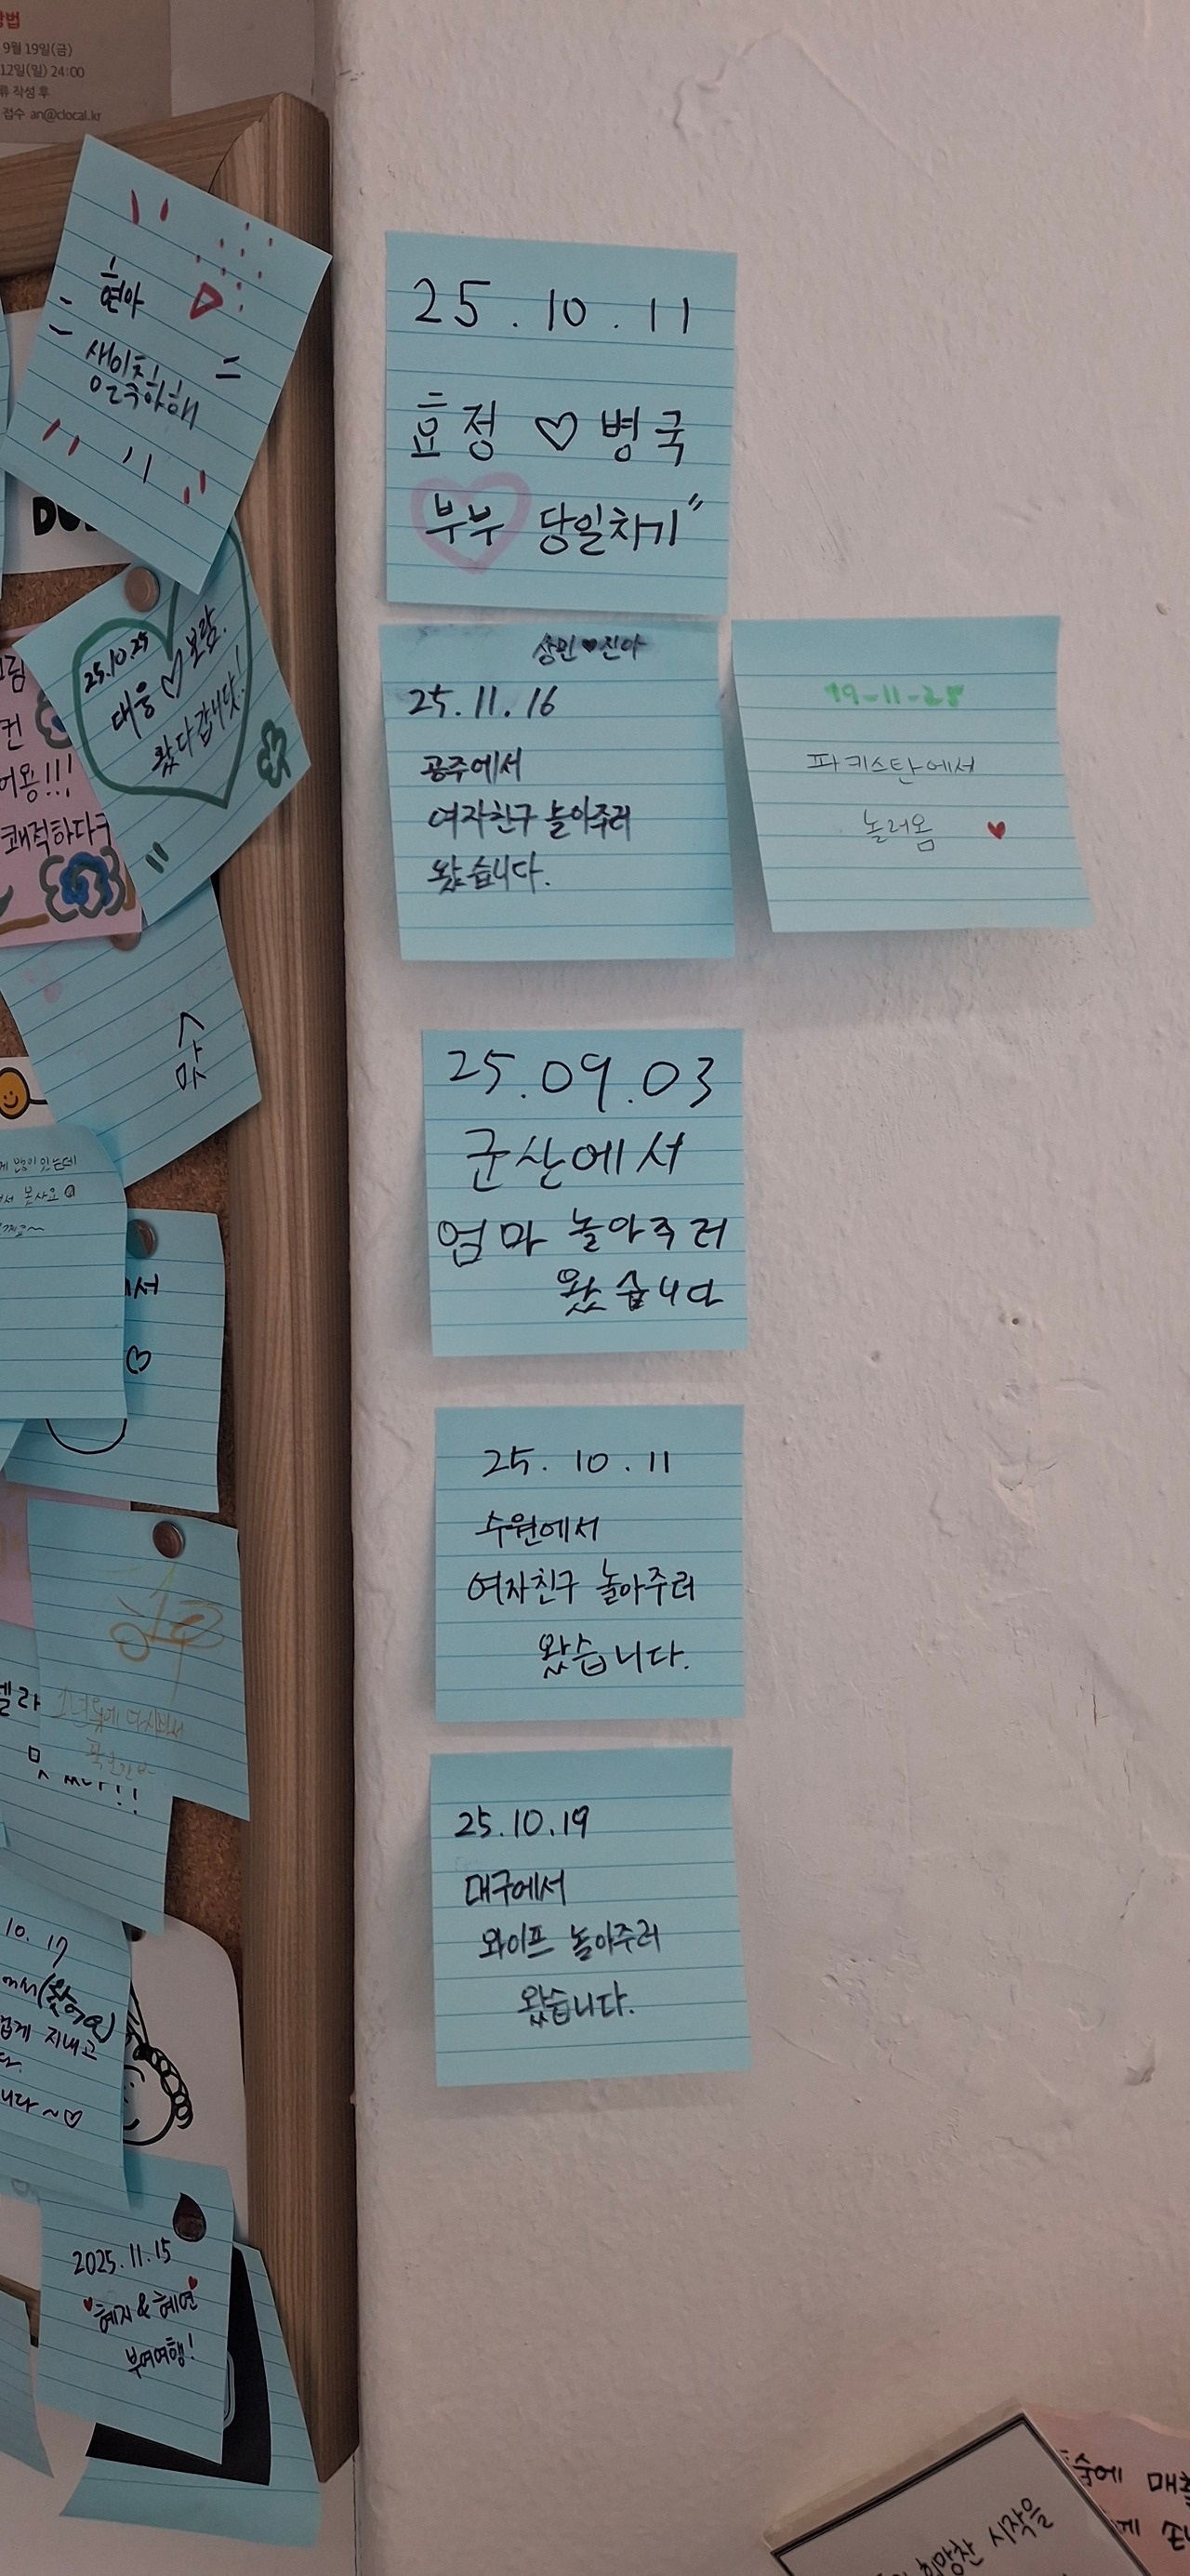 9월 19일(금)
12일(일) 24:00
류 작성 후
접수 an@clocal.kr
현아
생일축하해
25.10.25
대웅♡보람.
왔다갑니닷!
25.10.11
효정 ♡ 병국
부부 당일치기"
상민♥진아
25.11.16
공주에서
여자친구 놀아주러
왔습니다.
19-11-25
파키스탄에서
놀러옴 ♥
25.09.03
군산에서
엄마 놀아주러
왔습니다
25.10.11
수원에서
여자친구 놀아주러
왔습니다.
25.10.19
대구에서
와이프 놀아주러
왔습니다.
어용!!!
쾌적하다
많이 있는데
못사요
10.17
에서(왔어요)
지내고
니다~♡
2025.11.15
혜지&혜연
부여여행!
희망찬 시작을